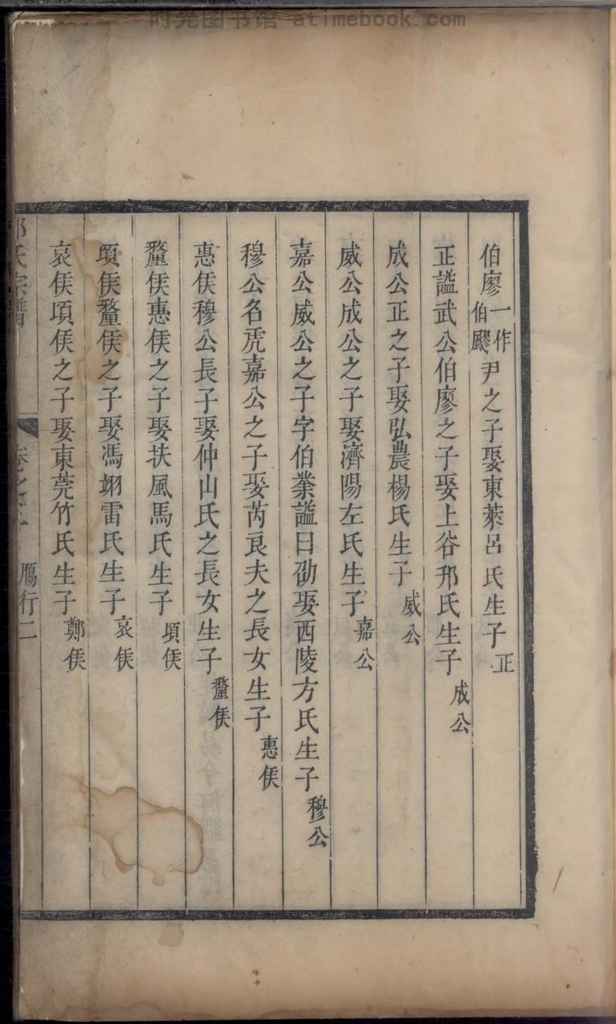 时光图书馆 atimebook.com
伯廖一作伯飂尹之子娶東萊呂氏生子正
正謚武公伯廖之子娶上谷邢氏生子成公
成公正之子娶弘農楊氏生子威公
威公成公之子娶濟陽左氏生子嘉公
嘉公威公之子字伯業謚曰劭娶西陵方氏生子穆公
穆公名虎嘉公之子娶芮良夫之長女生子惠侯
惠侯穆公長子娶仲山氏之長女生子釐侯
釐侯惠侯之子娶扶風馬氏生子頃侯
頃侯釐侯之子娶馮翊雷氏生子哀侯
哀侯頃侯之子娶東莞竹氏生子鄭侯
氏宗譜 卷之 鴈行二